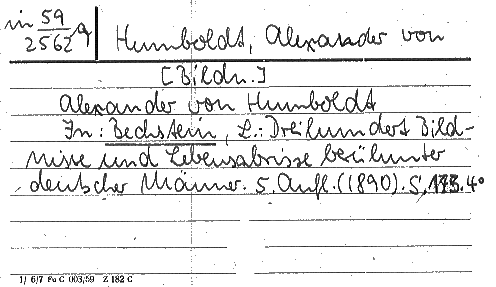 in 59/2562 q
Humboldt, Alexander von
[Bildn.]
Alexander von Humboldt
In: Bechstein, L.: Dreihundert Bild-
nisse und Lebensabrisse berühmter
deutscher Männer. 5. Aufl. (1890). S. 173. 4°
1/ 6/7 Fu C 003/59 Z 182 C